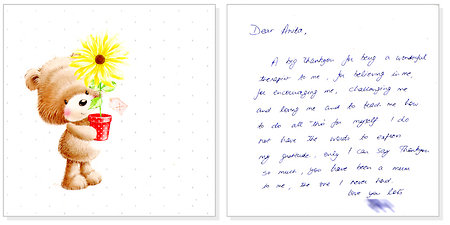 Dear Anita,
A big thankyou for being a wonderful
therapist to me, for believing in me,
for encouraging me, challenging me
and loving me and to teach me how
to do all "this" for myself I do
not have the words to express
my gratitude, only I can say Thankyou
so much, you have been a mum
to me, the one I never had.
love you lots